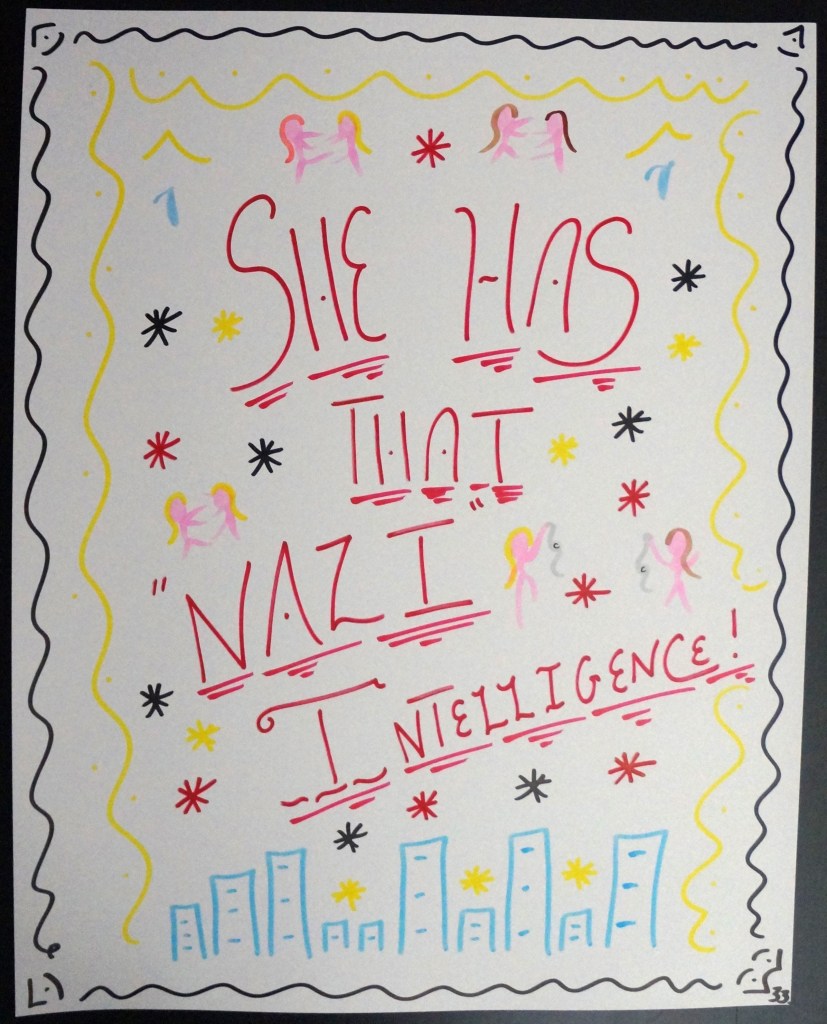 SHE HAS
THAT
"NAZI"
INTELLIGENCE!
33